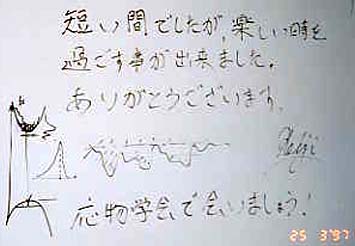 短い間でしたが、楽しい時を
過ごす事が出来ました。
ありがとうございます。
応物学会で会いましょう!
25 3'97